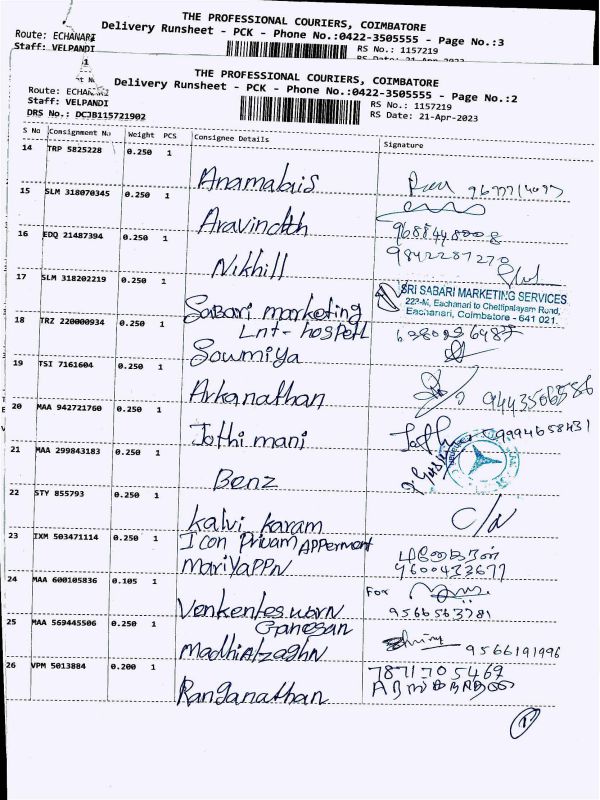 THE PROFESSIONAL COURIERS, COIMBATORE
Delivery Runsheet - PCK - Phone No.:0422-3505555 - Page No.:3
Route: ECHANARI
Staff: VELPANDI
RS No.: 1157219
RS Date: 21-Apr-2023
THE PROFESSIONAL COURIERS, COIMBATORE
Delivery Runsheet - PCK - Phone No.:0422-3505555 - Page No.:2
Route: ECHANARI
Staff: VELPANDI
DRS No.: DCJB115721902
RS No.: 1157219
RS Date: 21-Apr-2023
S No Consignment No Weight PCS Consignee Details Signature
14 TRP 5825228 0.250 1
Anamalais
15 SLM 318070345 0.250 1
Aravindth
16 EDQ 21487394 0.250 1
9688448008
Nikhill
9842287270
17 SLM 318202219 0.250 1
SRI SABARI MARKETING SERVICES
222-M, Eachanari to Chettipalayam Road,
Eachanari, Coimbatore - 641 021.
Sabari marketing
Lnt- hospell
18 TRZ 220000934 0.250 1
Soumiya
19 TSI 7161604 0.250 1
Arkanathan
9443566586
20 MAA 942721760 0.250 1
Jothimani
9994658431
21 MAA 299843183 0.250 1
Benz
22 STY 855793 0.250 1
Kalvi karam
23 IXM 503471114 0.250 1
Icon Privam Apperment
Mariyappn
9600433677
24 MAA 600105836 0.105 1
For
Venkenteswarn
Ganesan
9566563781
25 MAA 569445506 0.250 1
Madhialzaghn
9566191996
26 VPM 5013884 0.200 1
7871705469
Ranganathan
1